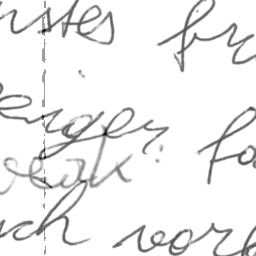 nstes fr
enger fa
weak:
ch vorb